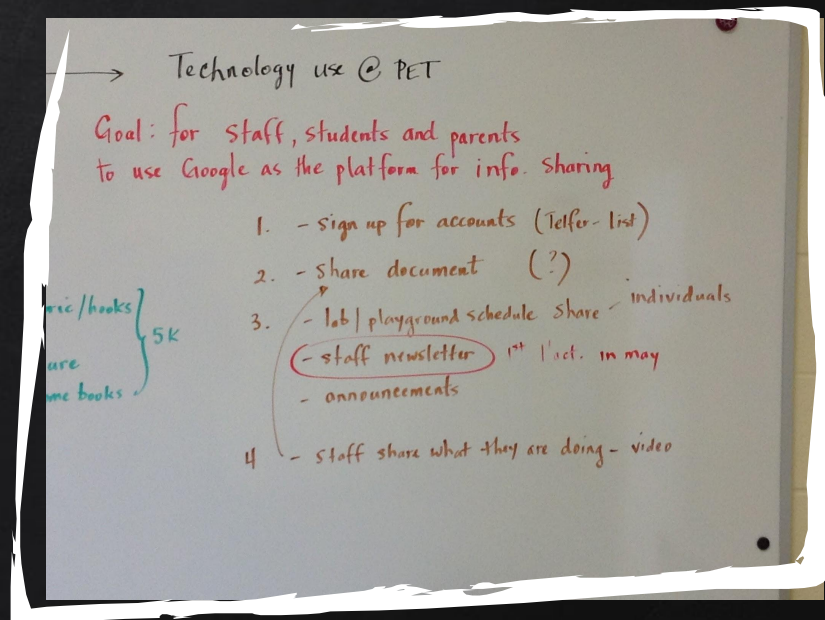 Technology use @ PET
Goal: for staff, students and parents
to use Google as the platform for info. sharing
1. - sign up for accounts (Telfer-list)
2. - share document (?)
3. - lab/playground schedule share - individuals
- staff newsletter 1st l'act. in may
- announcements
4 - staff share what they are doing - video
/books
5K
books